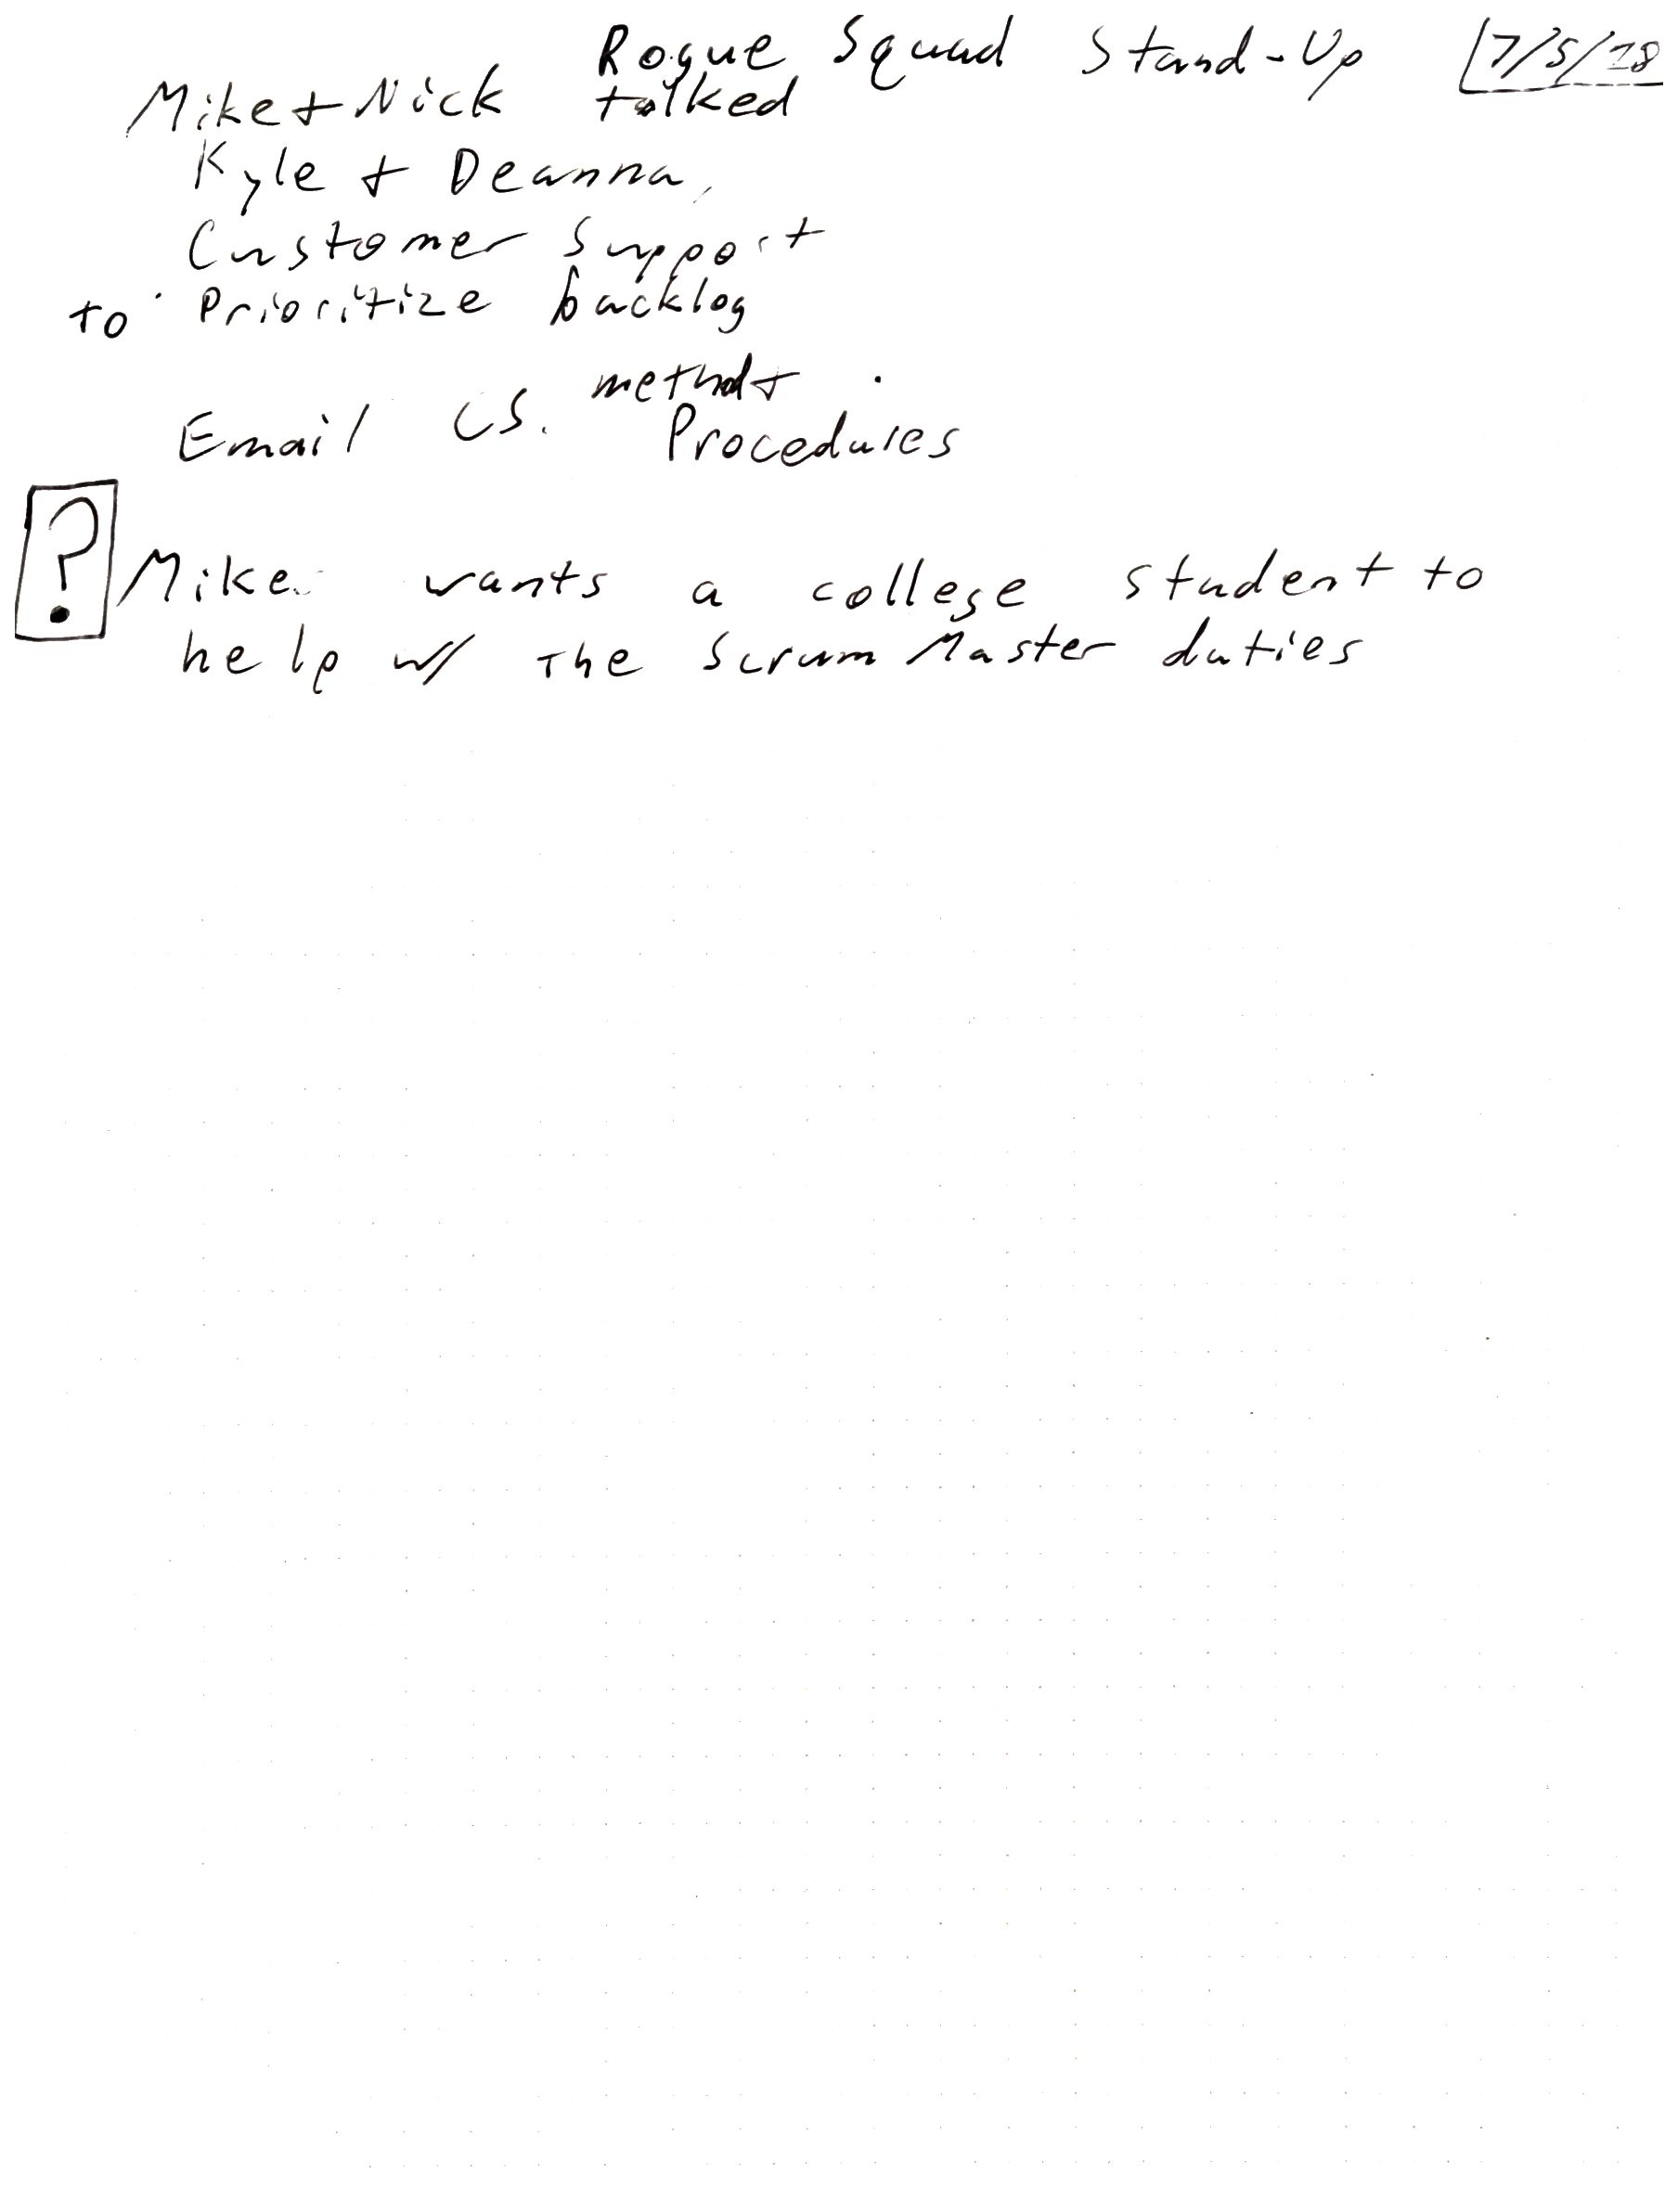 Rogue Squad Stand-Up 7/5/18
Mike + Nick talked
Kyle + Deanna,
Customer Support
to Prioritize backlog
method +
Email CS. Procedures
?
Mike wants a college student to
help w/ the Scrum Master duties